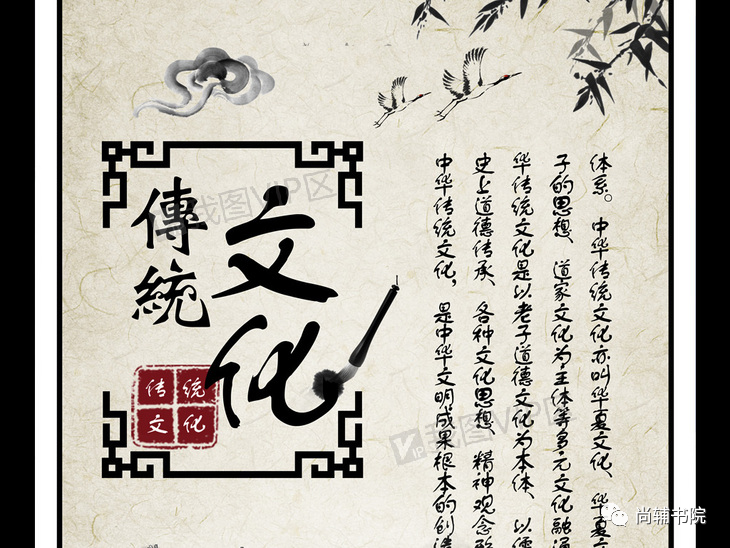 傳統
文化
传统
文化
中华传统文化，是中华文明成果根本的创造
史上道德传承、各种文化思想、精神观念形
华传统文化是以老子道德文化为本体、以儒
子的思想、道家文化为主体等多元文化融通
体系。中华传统文化亦叫华夏文化、华夏文
我图VIP区
VIP 我图VIP区
尚辅书院